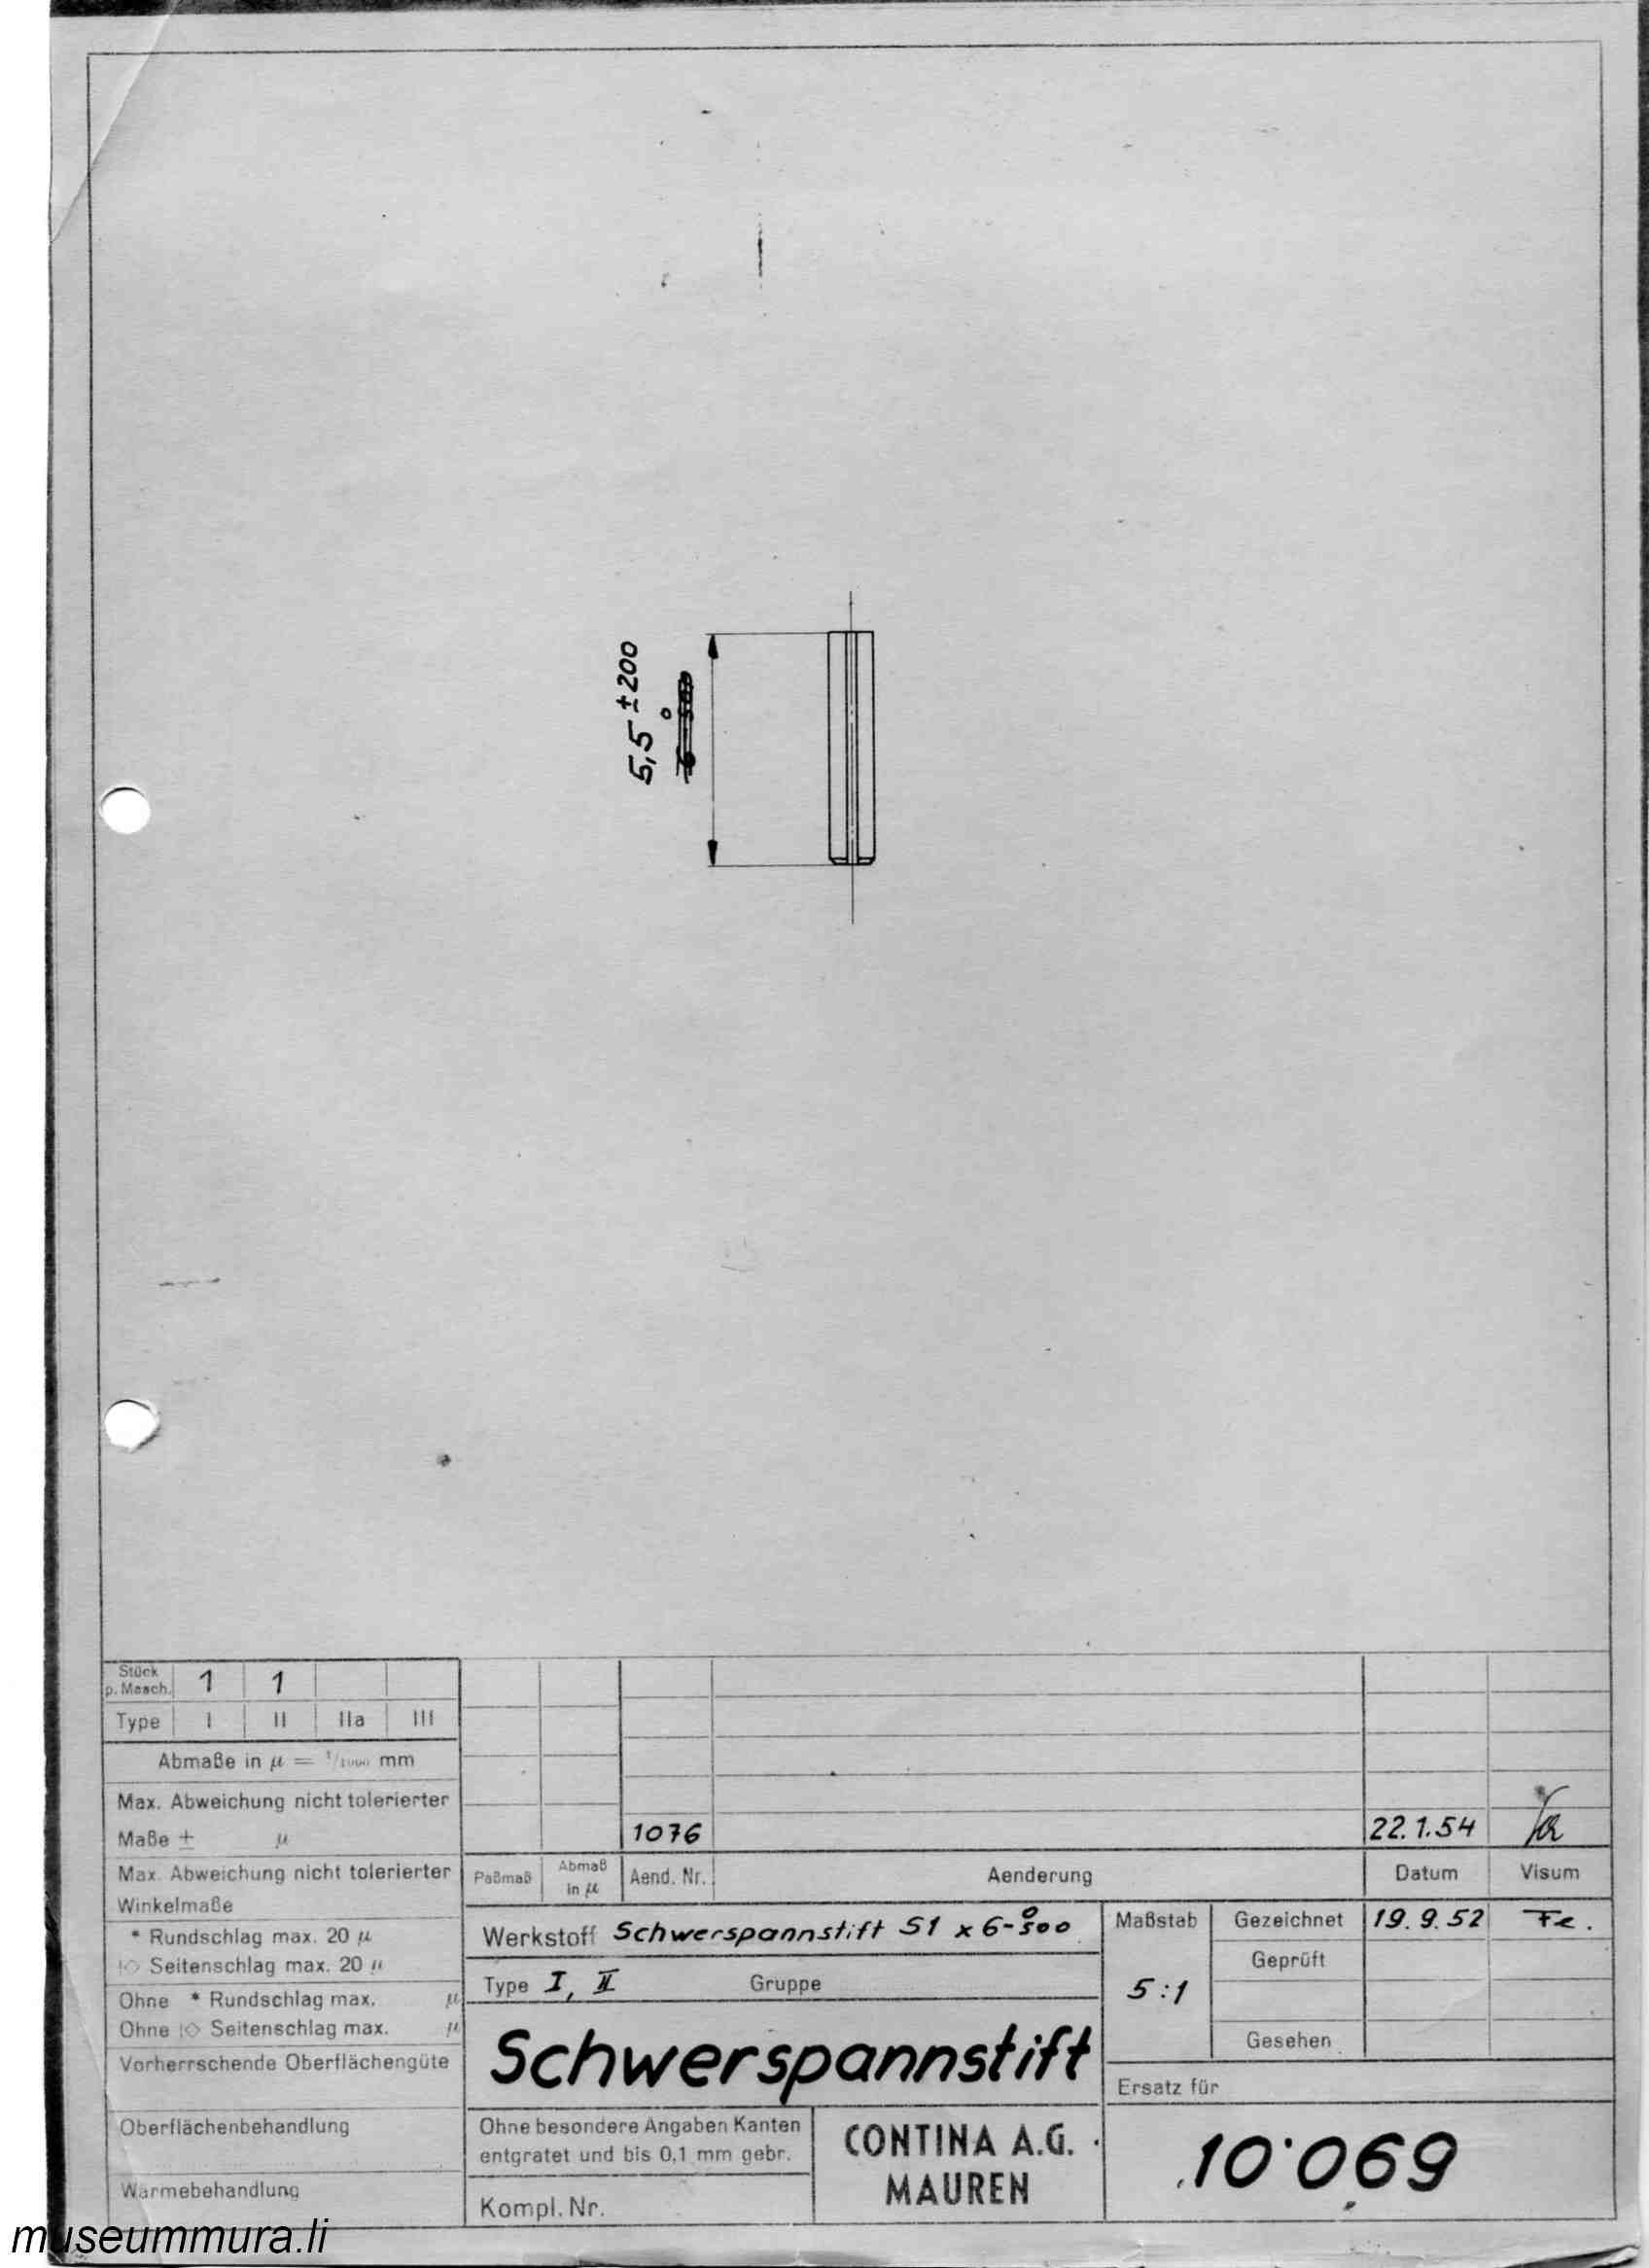 5,5 ±200
0
Stück
p. Masch. 1 1
Type I II IIa III
Abmaße in µ = 1/1000 mm
Max. Abweichung nicht tolerierter
Maße ± µ
Max. Abweichung nicht tolerierter
Winkelmaße
* Rundschlag max. 20 µ
Seitenschlag max. 20 µ
Ohne * Rundschlag max. µ
Ohne Seitenschlag max. µ
Vorherrschende Oberflächengüte
Oberflächenbehandlung
Wärmebehandlung
1076 22.1.54
Paßmaß Abmaß in µ Aend. Nr. Aenderung Datum Visum
Werkstoff Schwerspannstift S1 x 6 -0 500
Type I, II Gruppe
Schwerspannstift
Ohne besondere Angaben Kanten
entgratet und bis 0,1 mm gebr.
Kompl. Nr.
CONTINA A.G.
MAUREN
Maßstab
5:1
Gezeichnet 19.9.52 Fe.
Geprüft
Gesehen
Ersatz für
10·069
museummura.li